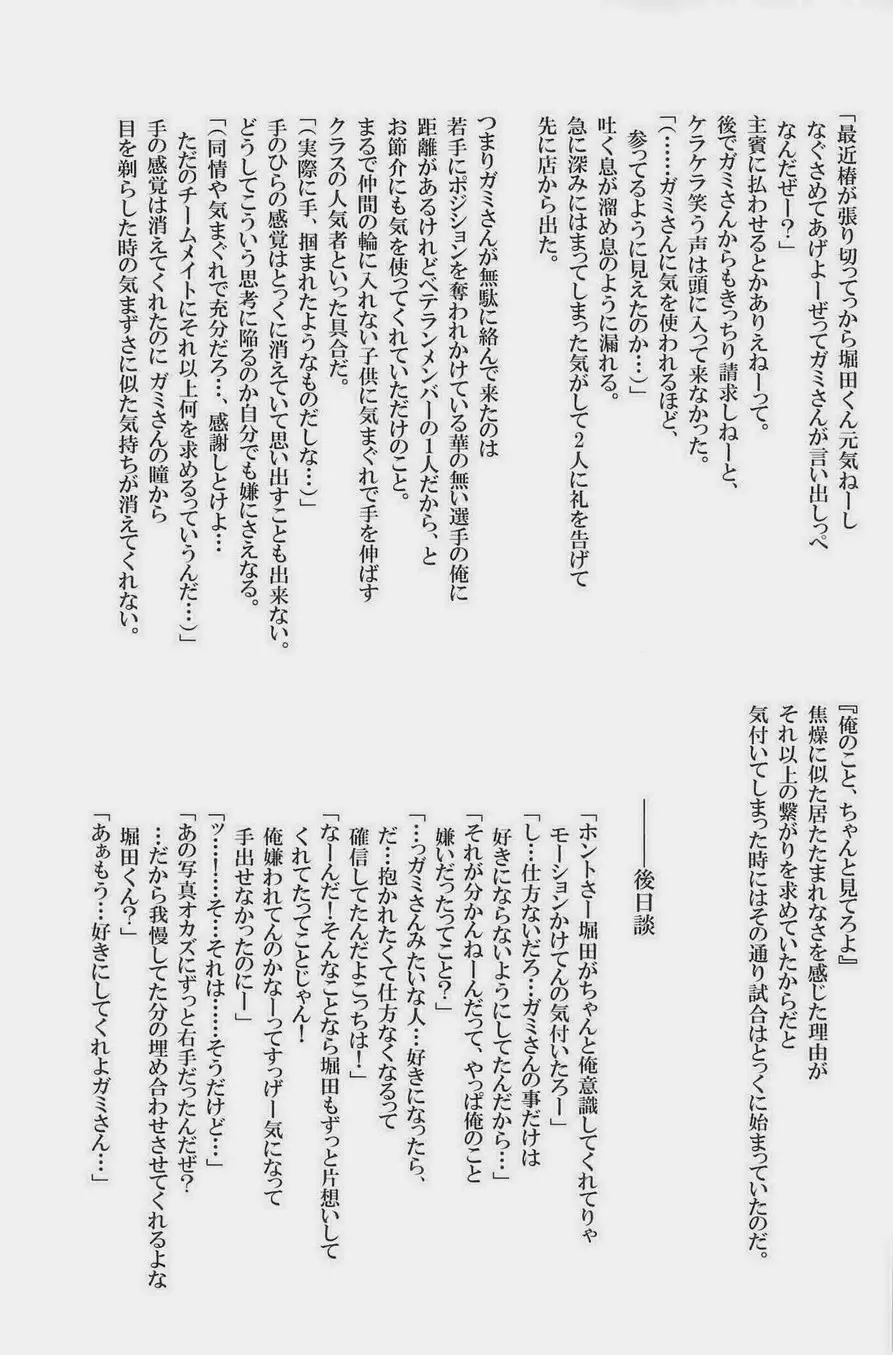 「最近椿が張り切ってっから堀田くん元気ねーし
なぐさめてあげよーぜってガミさんが言い出しっぺ
なんだぜー？」
主賓に払わせるとかありえねーって。
後でガミさんからもきっちり請求しねーと、
ケラケラ笑う声は頭に入って来なかった。
「（……ガミさんに気を使われるほど、
参ってるように見えたのか…）」
吐く息が溜め息のように漏れる。
急に深みにはまってしまった気がして２人に礼を告げて
先に店から出た。
つまりガミさんが無駄に絡んで来たのは
若手にポジションを奪われかけている華の無い選手の俺に
距離があるけれどベテランメンバーの１人だから、と
お節介にも気を使ってくれていただけのこと。
まるで仲間の輪に入れない子供に気まぐれで手を伸ばす
クラスの人気者といった具合だ。
「（実際に手、掴まれたようなものだしな…）」
手のひらの感覚はとっくに消えていて思い出すことも出来ない。
どうしてこういう思考に陥るのか自分でも嫌にさえなる。
「（同情や気まぐれで充分だろ…、感謝しとけよ…
ただのチームメイトにそれ以上何を求めるっていうんだ…）」
手の感覚は消えてくれたのに ガミさんの瞳から
目を剃らした時の気まずさに似た気持ちが消えてくれない。
『俺のこと、ちゃんと見てろよ』
焦燥に似た居たたまれなさを感じた理由が
それ以上の繋がりを求めていたからだと
気付いてしまった時にはその通り試合はとっくに始まっていたのだ。
――――後日談
「ホントさー堀田がちゃんと俺意識してくれてりゃ
モーションかけてんの気付いたろー」
「し…仕方ないだろ…ガミさんの事だけは
好きにならないようにしてたんだから…」
「それが分かんねーんだって、やっぱ俺のこと
嫌いだったってこと？」
「…っガミさんみたいな人…好きになったら、
だ…抱かれたくて仕方なくなるって
確信してたんだよこっちは！」
「なーんだ！そんなことなら堀田もずっと片想いして
くれてたってことじゃん！
俺嫌われてんのかなーってすっげー気になって
手出せなかったのにー」
「ッ…！…そ…それは……そうだけど…」
「あの写真オカズにずっと右手だったんだぜ？
…だから我慢してた分の埋め合わせさせてくれるよな
堀田くん？」
「あぁもう…好きにしてくれよガミさん…」